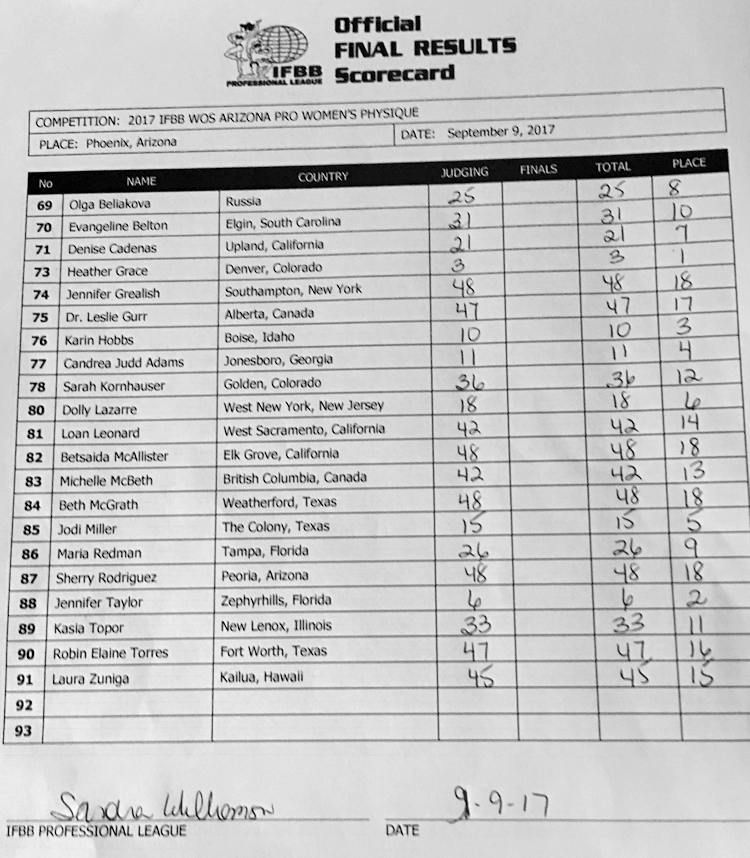 Official
FINAL RESULTS
IFBB Scorecard
PROFESSIONAL LEAGUE
COMPETITION: 2017 IFBB WOS ARIZONA PRO WOMEN'S PHYSIQUE
PLACE: Phoenix, Arizona DATE: September 9, 2017
No NAME COUNTRY JUDGING FINALS TOTAL PLACE
69 Olga Beliakova Russia 25 25 8
70 Evangeline Belton Elgin, South Carolina 31 31 10
71 Denise Cadenas Upland, California 21 21 7
73 Heather Grace Denver, Colorado 3 3 1
74 Jennifer Grealish Southampton, New York 48 48 18
75 Dr. Leslie Gurr Alberta, Canada 47 47 17
76 Karin Hobbs Boise, Idaho 10 10 3
77 Candrea Judd Adams Jonesboro, Georgia 11 11 4
78 Sarah Kornhauser Golden, Colorado 36 36 12
80 Dolly Lazarre West New York, New Jersey 18 18 6
81 Loan Leonard West Sacramento, California 42 42 14
82 Betsaida McAllister Elk Grove, California 48 48 18
83 Michelle McBeth British Columbia, Canada 42 42 13
84 Beth McGrath Weatherford, Texas 48 48 18
85 Jodi Miller The Colony, Texas 15 15 5
86 Maria Redman Tampa, Florida 26 26 9
87 Sherry Rodriguez Peoria, Arizona 48 48 18
88 Jennifer Taylor Zephyrhills, Florida 6 6 2
89 Kasia Topor New Lenox, Illinois 33 33 11
90 Robin Elaine Torres Fort Worth, Texas 47 47 16
91 Laura Zuniga Kailua, Hawaii 45 45 15
92
93
Sandra Williamson 9-9-17
IFBB PROFESSIONAL LEAGUE DATE